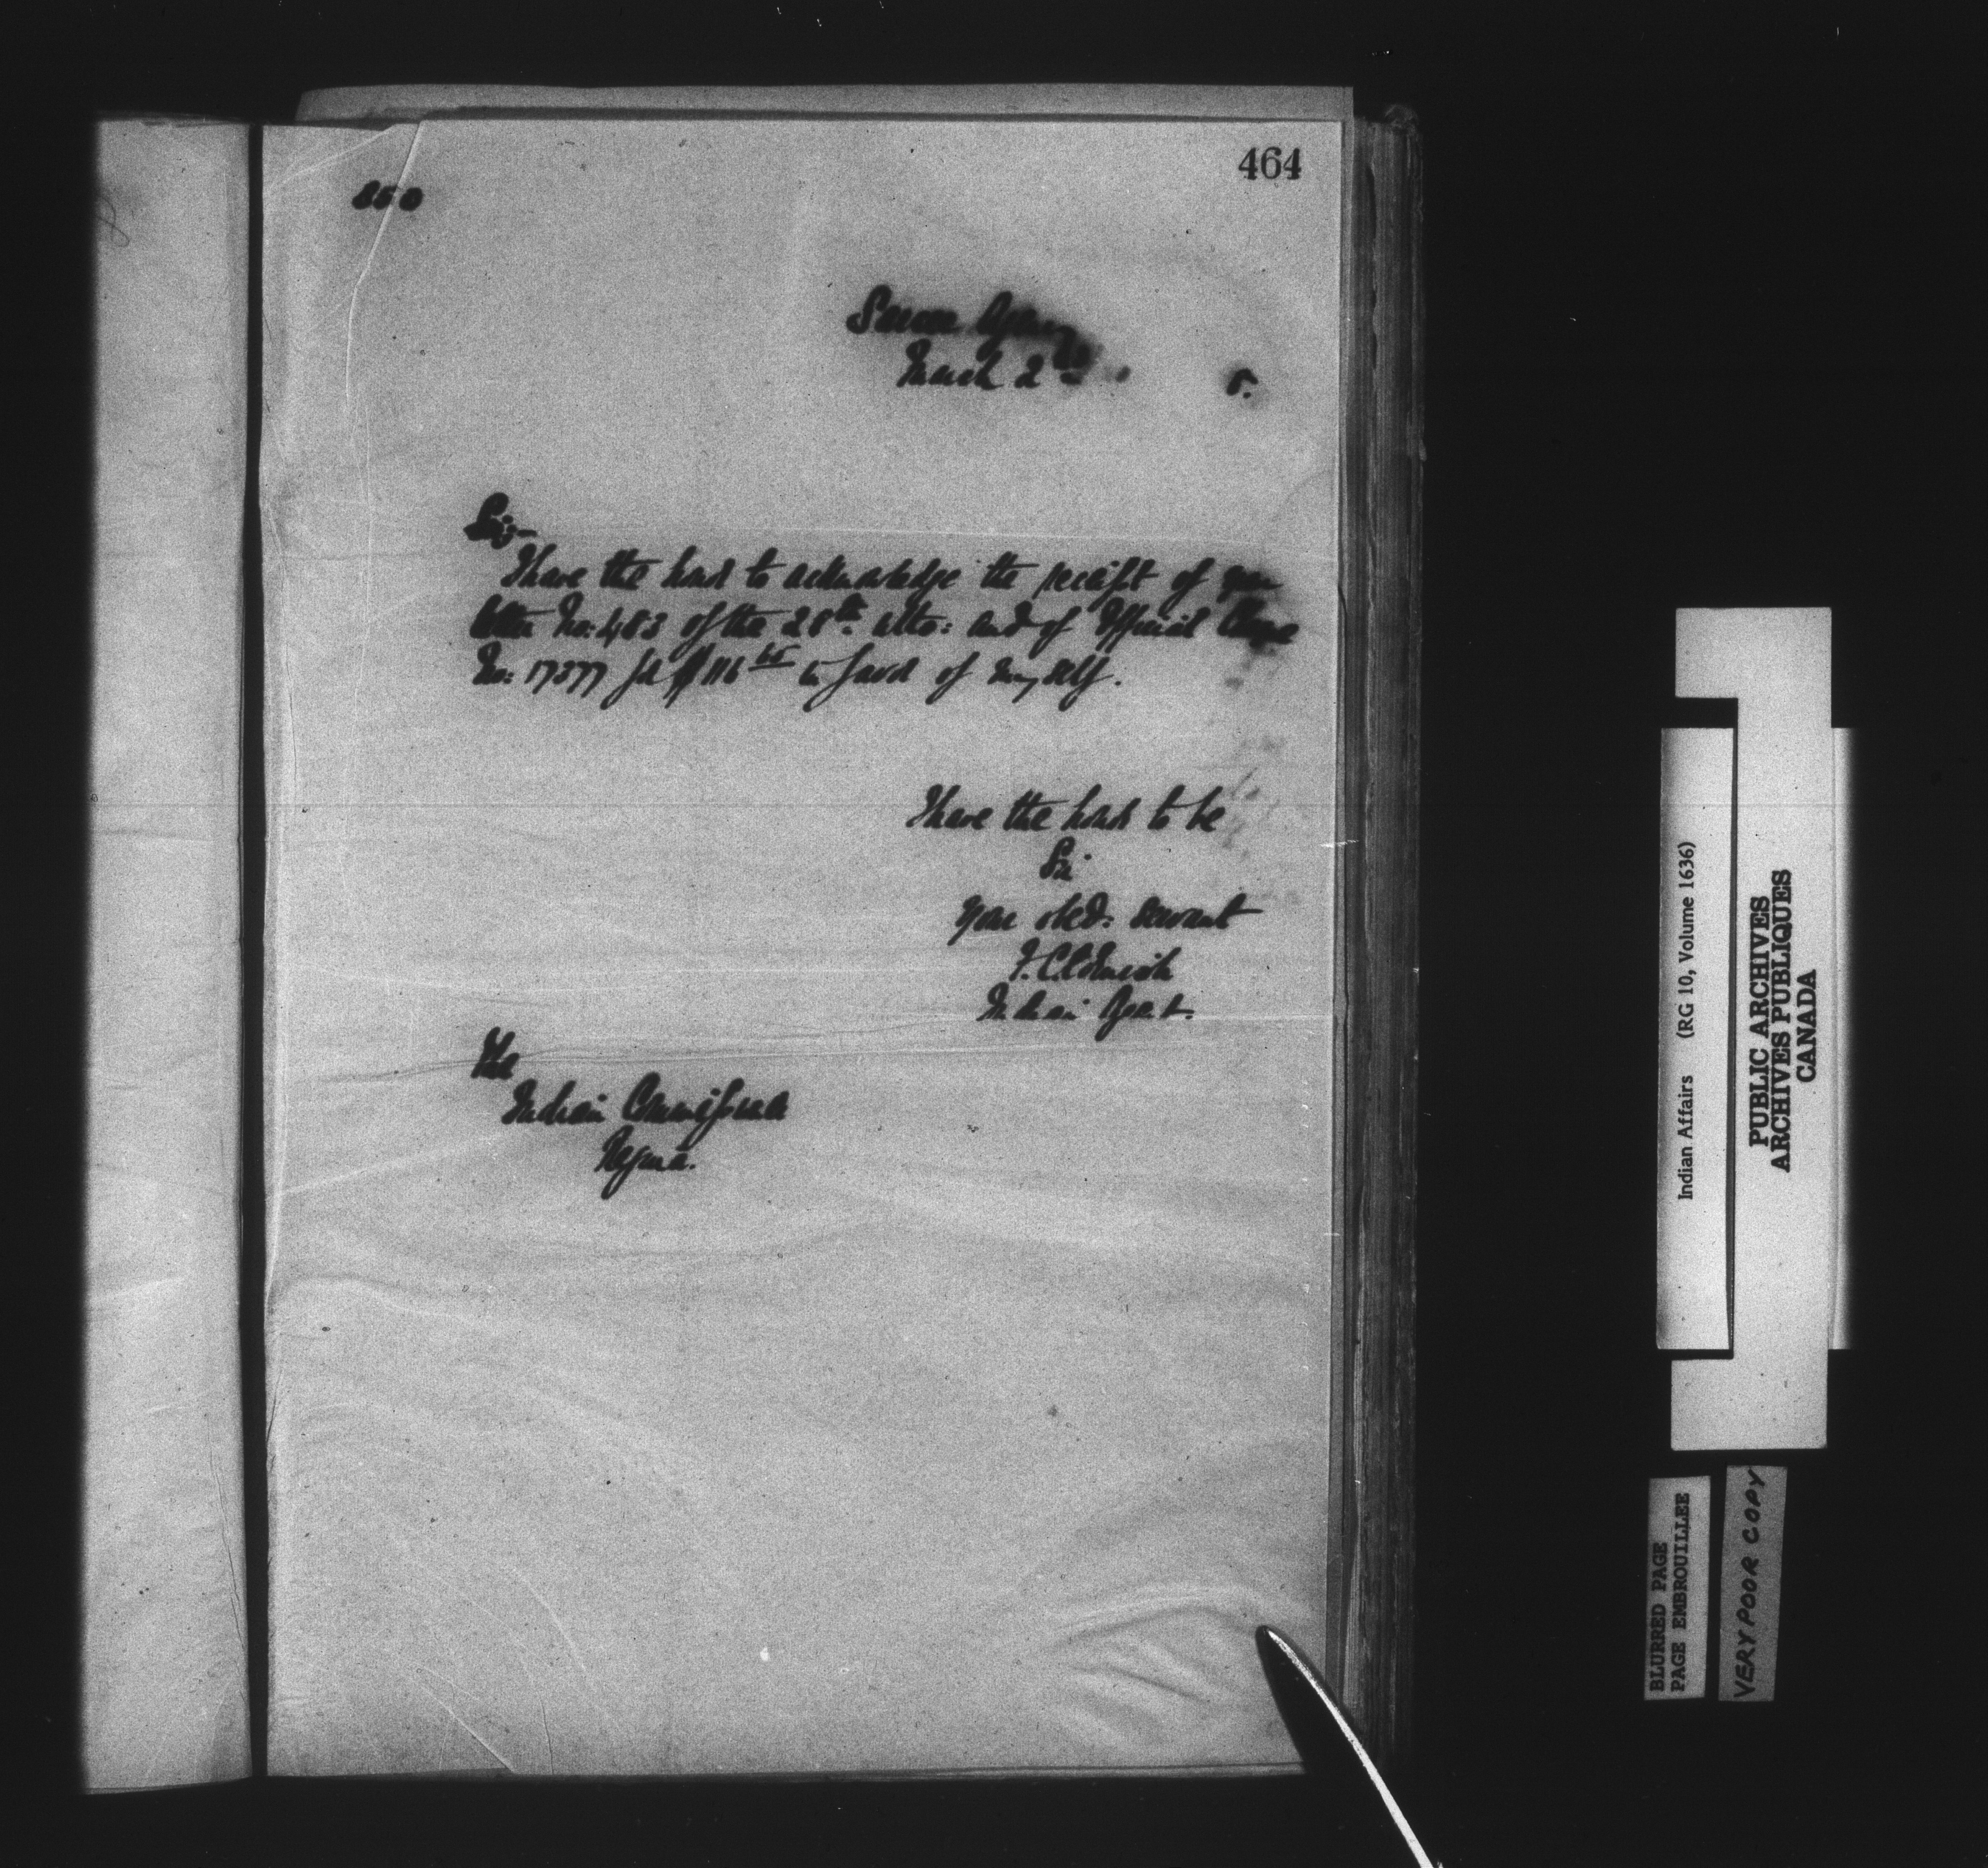 464
850
Sarcee Agency
March 2nd 5.
Sir:-
I have the honor to acknowledge the receipt of your
letter No: 483 of the 28th. ulto: and of Official Cheque
No: 17377 for $116 in favor of myself.
I have the honor to be
Sir
your obed. servant
F. C. Cornish
Indian Agent.
The
Indian Commissioner
Regina.
Indian Affairs (RG 10, Volume 1636)
PUBLIC ARCHIVES
ARCHIVES PUBLIQUES
CANADA
BLURRED PAGE
PAGE EMBROUILLEE
VERY POOR COPY